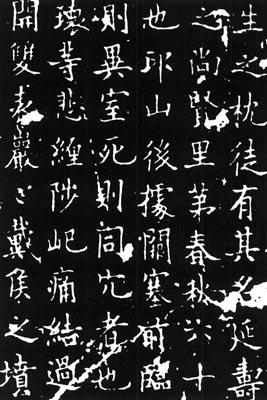 生之枕徒有其名延壽
之尚賢里第春秋六十
也邙山後據闕塞前臨
則異室死則同穴者也
瓌等悲纏陟屺痛結過
開雙表巖〻戴侯之墳